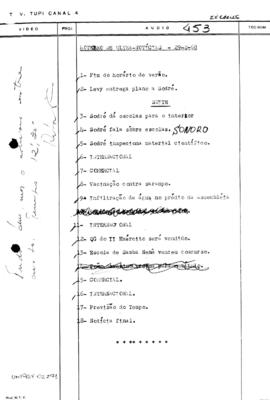 T V. TUPI CANAL 4
VIDEO
PROJ
AUDIO
453
ROTEIRO DE ULTRA-NOTÍCIAS - 29-2-68
1- Fim do horário de verão.
2- Levy entrega plano a Sodré.
3- Sodré dá escolas para o interior
4- Sodré fala sobre escolas. SONORO
5- Sodré inspeciona material científico.
6- INTERNACIONAL
7- COMERCIAL
8- Vacinação contra sarampo.
9- Infiltração de água no prédio da assembleia
11- INTERNACIONAL
12- QG do II Exército será vendido.
13- Escola de Samba Nenê venceu concurso.
15- COMERCIAL.
16- INTERNACIONAL.
17- Previsão do Tempo.
18- Notícia final.